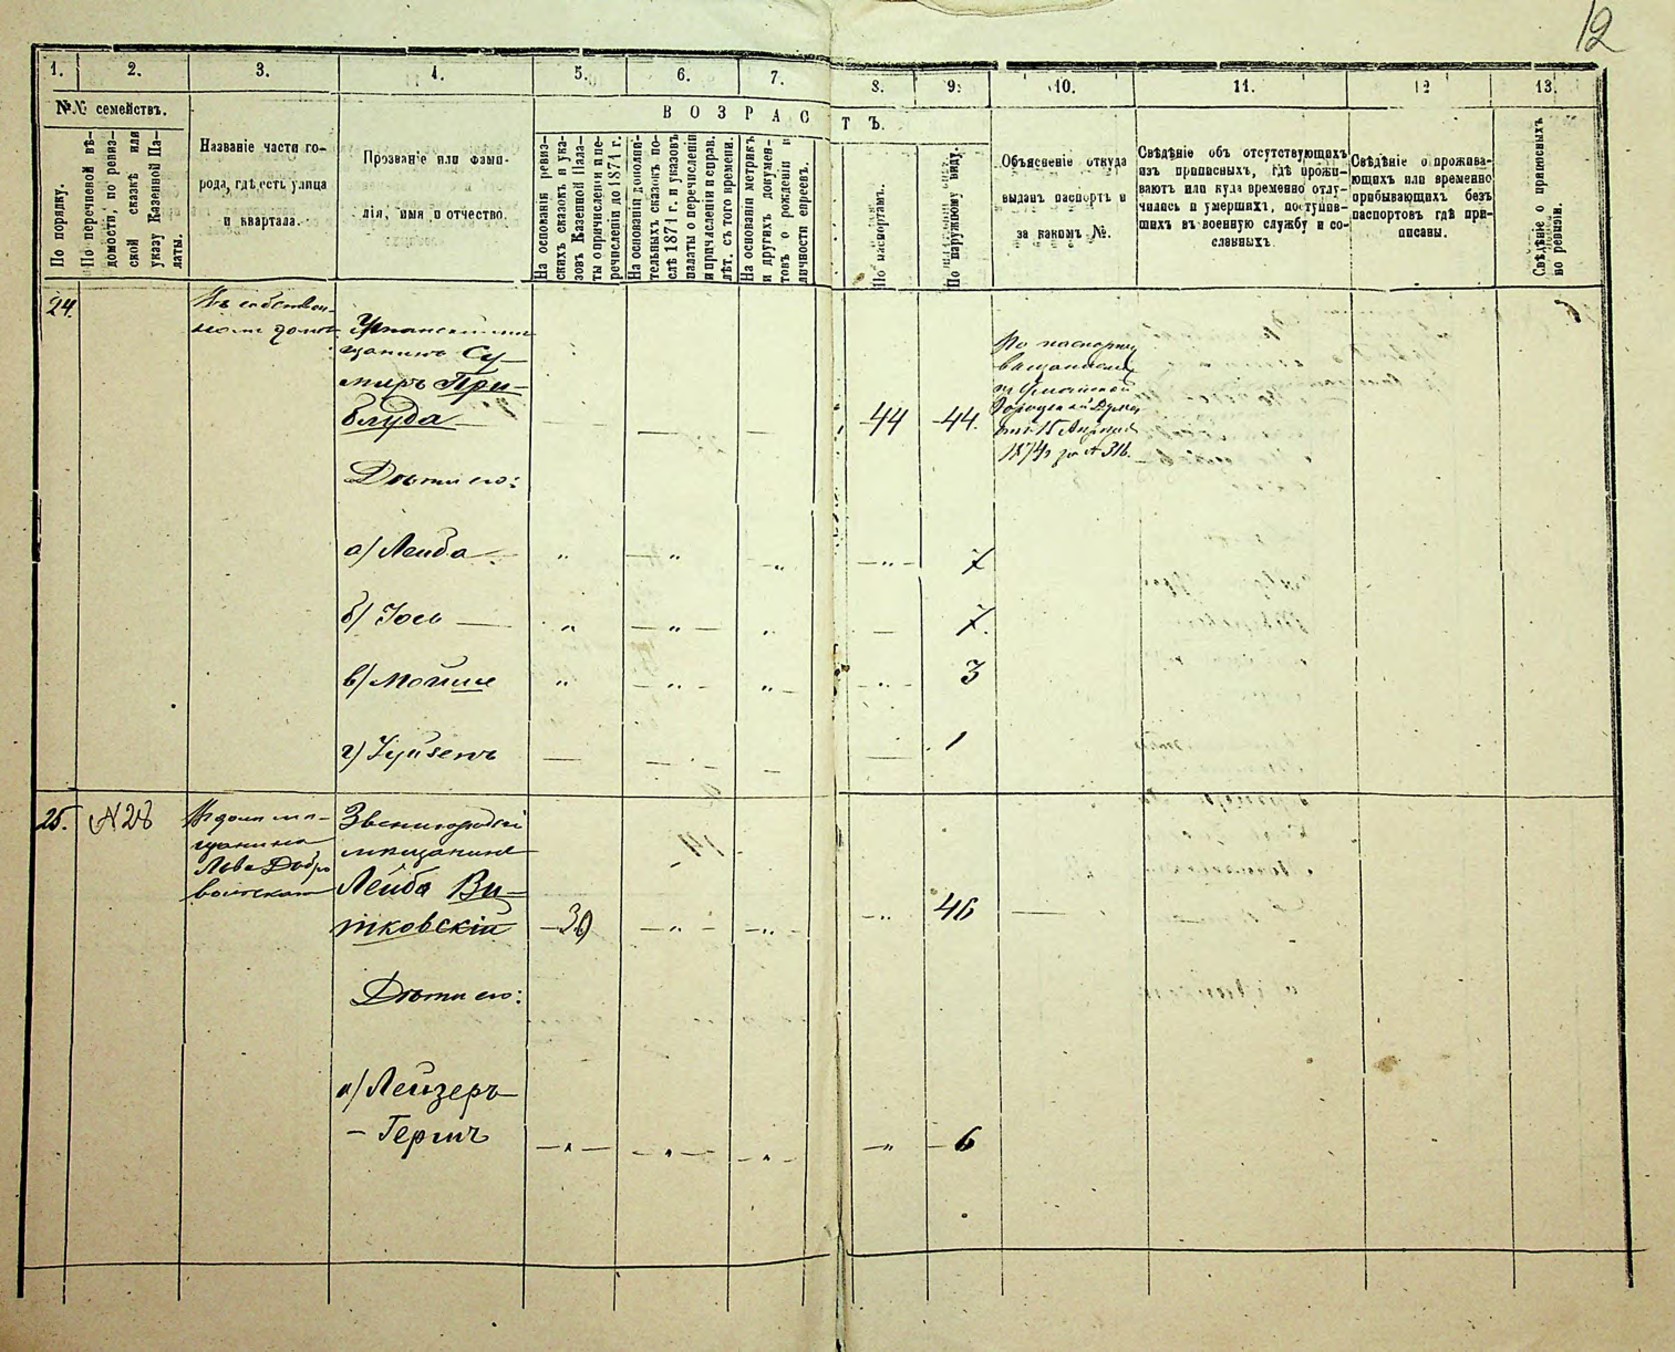 12
1. 2. 3. 4. 5. 6. 7. 8. 9. 10. 11. 12 13.
№№ семействъ.
ВОЗРАСТЪ.
По порядку.
По перечневой вѣ-
домости, по ревиз-
ской сказкѣ или
указу Казенной Па-
латы.
Названіе части го-
рода, гдѣ есть улица
и квартала.
Прозваніе или фами-
лія, имя и отчество.
На основаніи ревиз-
скихъ сказокъ и ука-
зовъ Казенной Пала-
ты о причисленіи и пе-
речисленіи до 1871 г.
На основаніи дополни-
тельныхъ сказокъ по-
слѣ 1871 г. и указовъ
палаты о перечисленіи
и причисленіи и справ.
лѣт. съ того времени.
На основаніи метрикъ
и другихъ докумен-
товъ о рожденіи и
личности евреевъ.
По паспортамъ.
По наружному виду.
Объясненіе откуда
выданъ паспортъ и
за какимъ №.
Свѣдѣніе объ отсутствующихъ
изъ приписныхъ, гдѣ прожи-
ваютъ или куда временно отлу-
чились и умершихъ, поступив-
шихъ въ военную службу и со-
сланныхъ.
Свѣдѣніе о прожива-
ющихъ или временно
прибывающихъ безъ
паспортовъ гдѣ при-
писаны.
Свѣдѣніе о приписныхъ
по ревизіи.
24.
Въ собствен-
номъ домѣ
щанинъ Су-
меръ При-
блуда — 44 44.
По паспорту
Городской Думы
отъ 15 Апрѣля
1874 г за № 316.
Дѣти его:
а) Лейба " " " " 7
б) Іось " " " 7.
в) Мойше " " " " 3
г) 1
25. №28
Въ домѣ мѣ-
щанина
Льва Добро
Звенигородскій
мѣщанинъ
Лейба Ви-
тковскій 30 " " " 46
Дѣти его:
а) Лейзеръ
- Гершъ " " " " 6